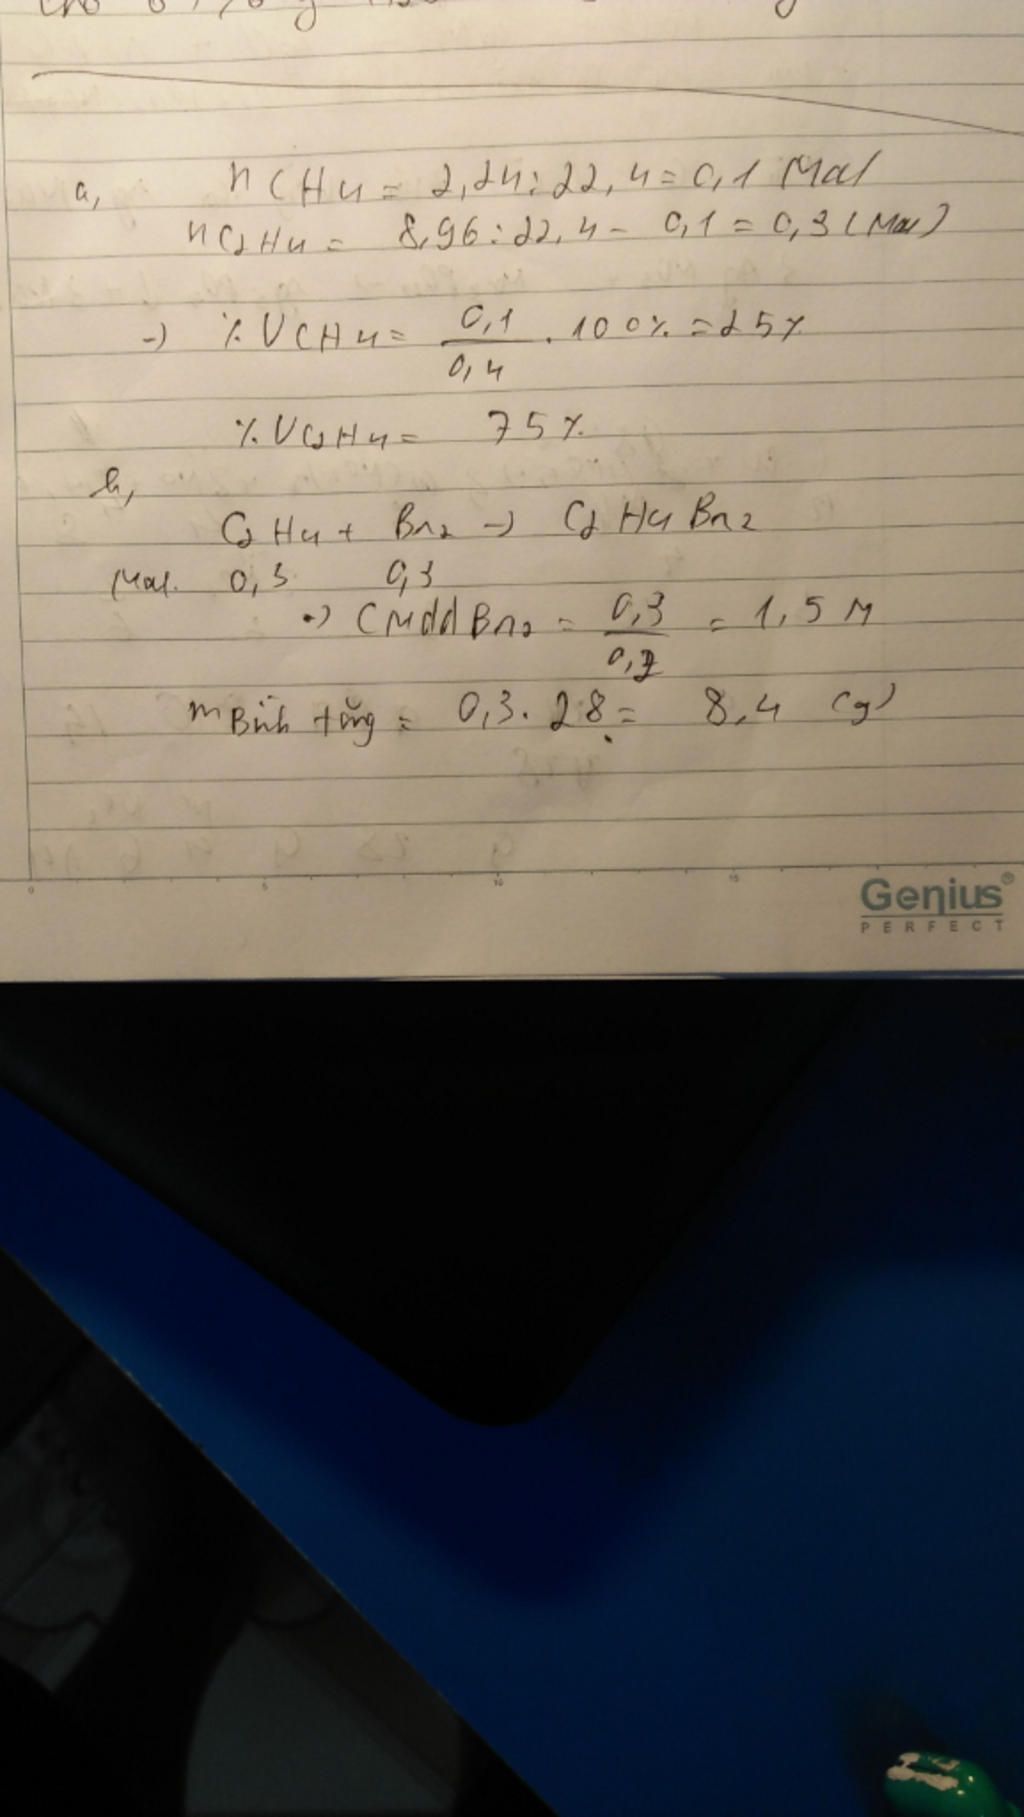 a, nCH4 = 2,24:22,4 = 0,1 Mol
nC2H4 = 8,96:22,4 - 0,1 = 0,3 (Mol)
-) % VCH4 = 0,1/0,4 . 100% = 25%
% VC2H4 = 75%
b,
C2H4 + Br2 -) C2H4Br2
Mol. 0,3 0,3
-) CMddBr2 = 0,3/0,2 = 1,5 M
mBình tăng = 0,3.28 = 8,4 (g)
0 5 10 15
Genius®
PERFECT